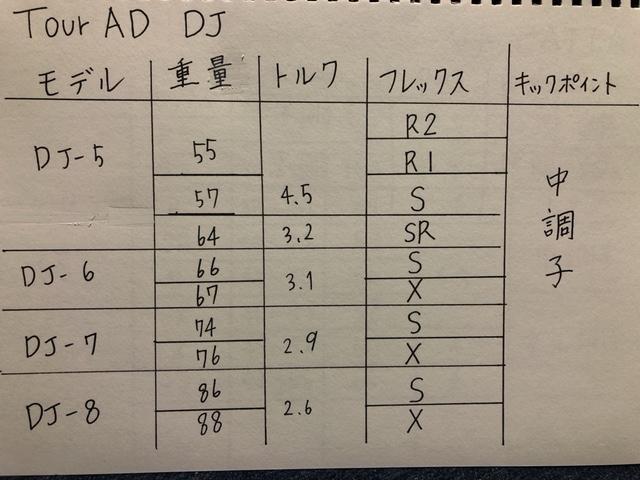 Tour AD DJ
モデル 重量 トルク フレックス キックポイント
R2
DJ-5 55 R1
57 4.5 S
64 3.2 SR
DJ-6 66 3.1 S
67 X
DJ-7 74 2.9 S
76 X
DJ-8 86 2.6 S
88 X
中調子